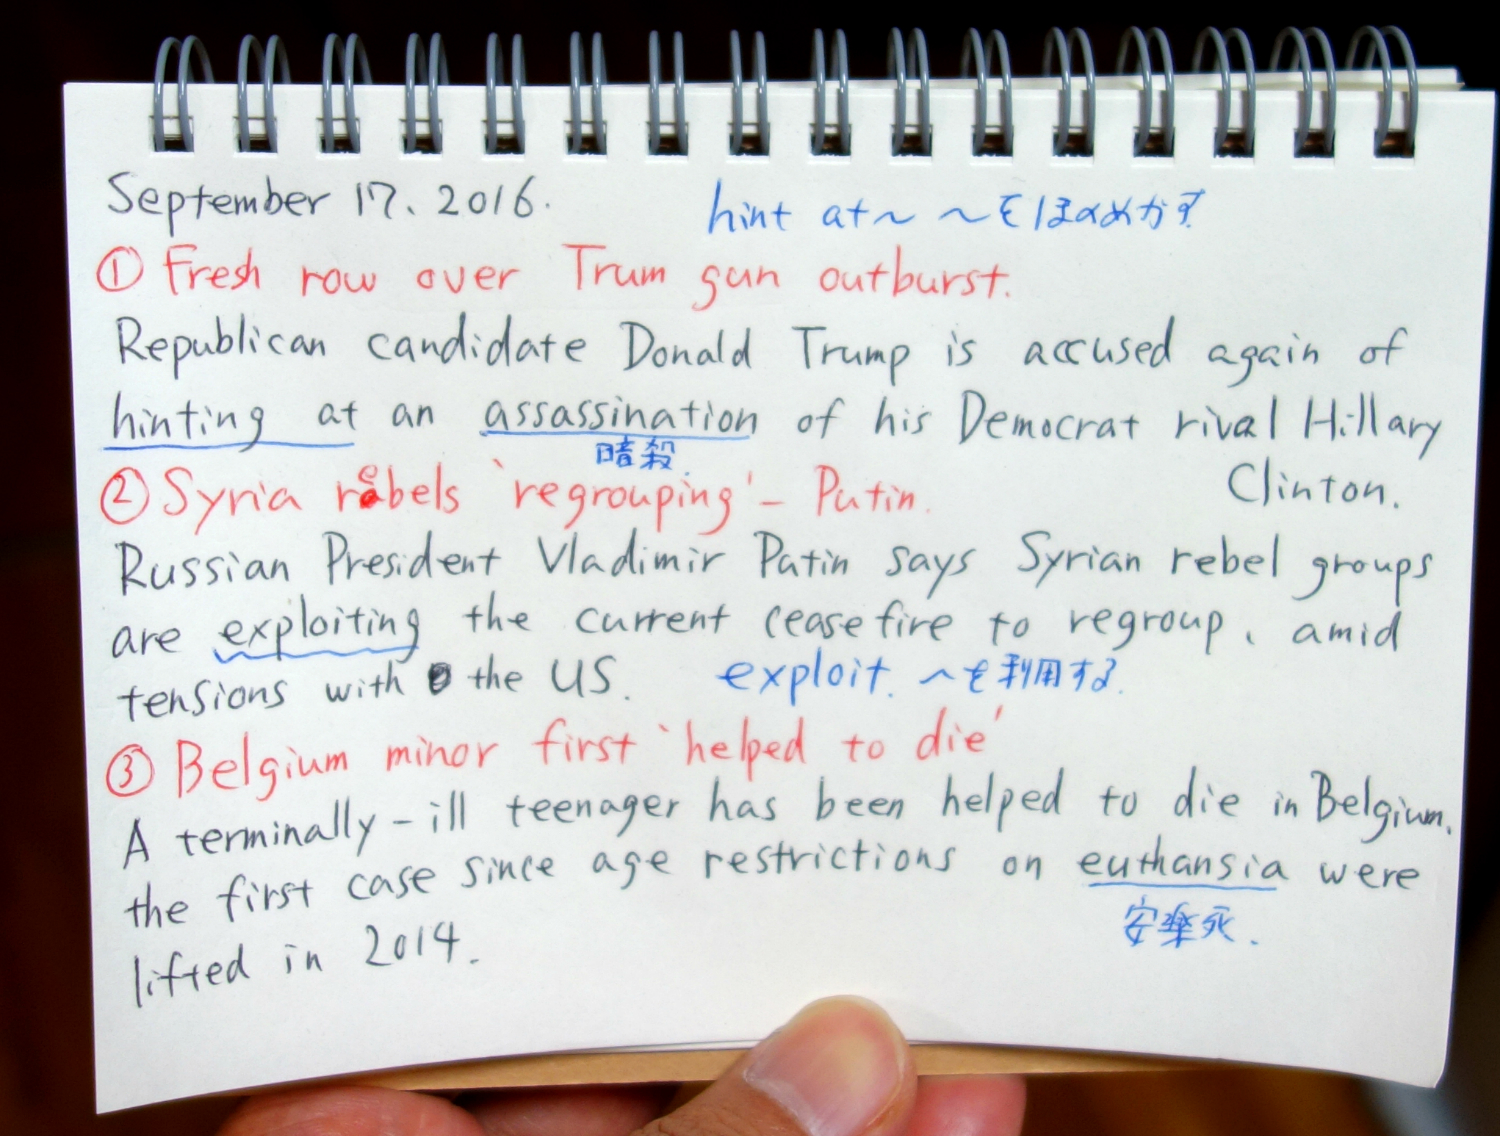 September 17, 2016.
hint at～ ～をほのめかす
① Fresh row over Trum gun outburst.
Republican candidate Donald Trump is accused again of
hinting at an assassination of his Democrat rival Hillary
暗殺.
Clinton.
② Syria rebels 'regrouping' - Putin.
Russian President Vladimir Putin says Syrian rebel groups
are exploiting the current ceasefire to regroup, amid
tensions with the US.
exploit. ～を利用する.
③ Belgium minor first 'helped to die'
A terminally-ill teenager has been helped to die in Belgium,
the first case since age restrictions on euthansia were
安楽死.
lifted in 2014.